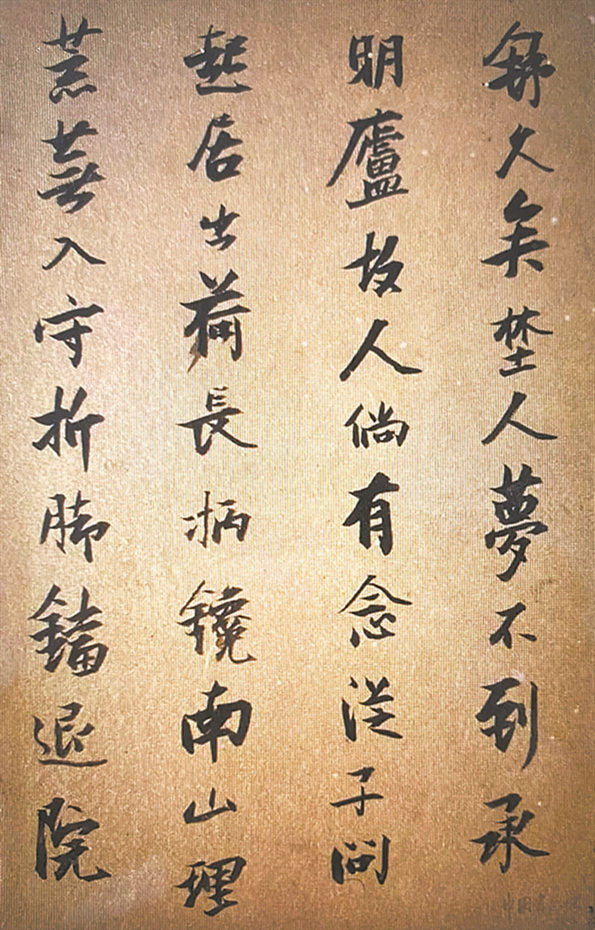 舒久矣埜人夢不到承
明廬故人倘有念從子問
起居出荷長柄鑱南山理
荒蕪入守折脚鐺退院